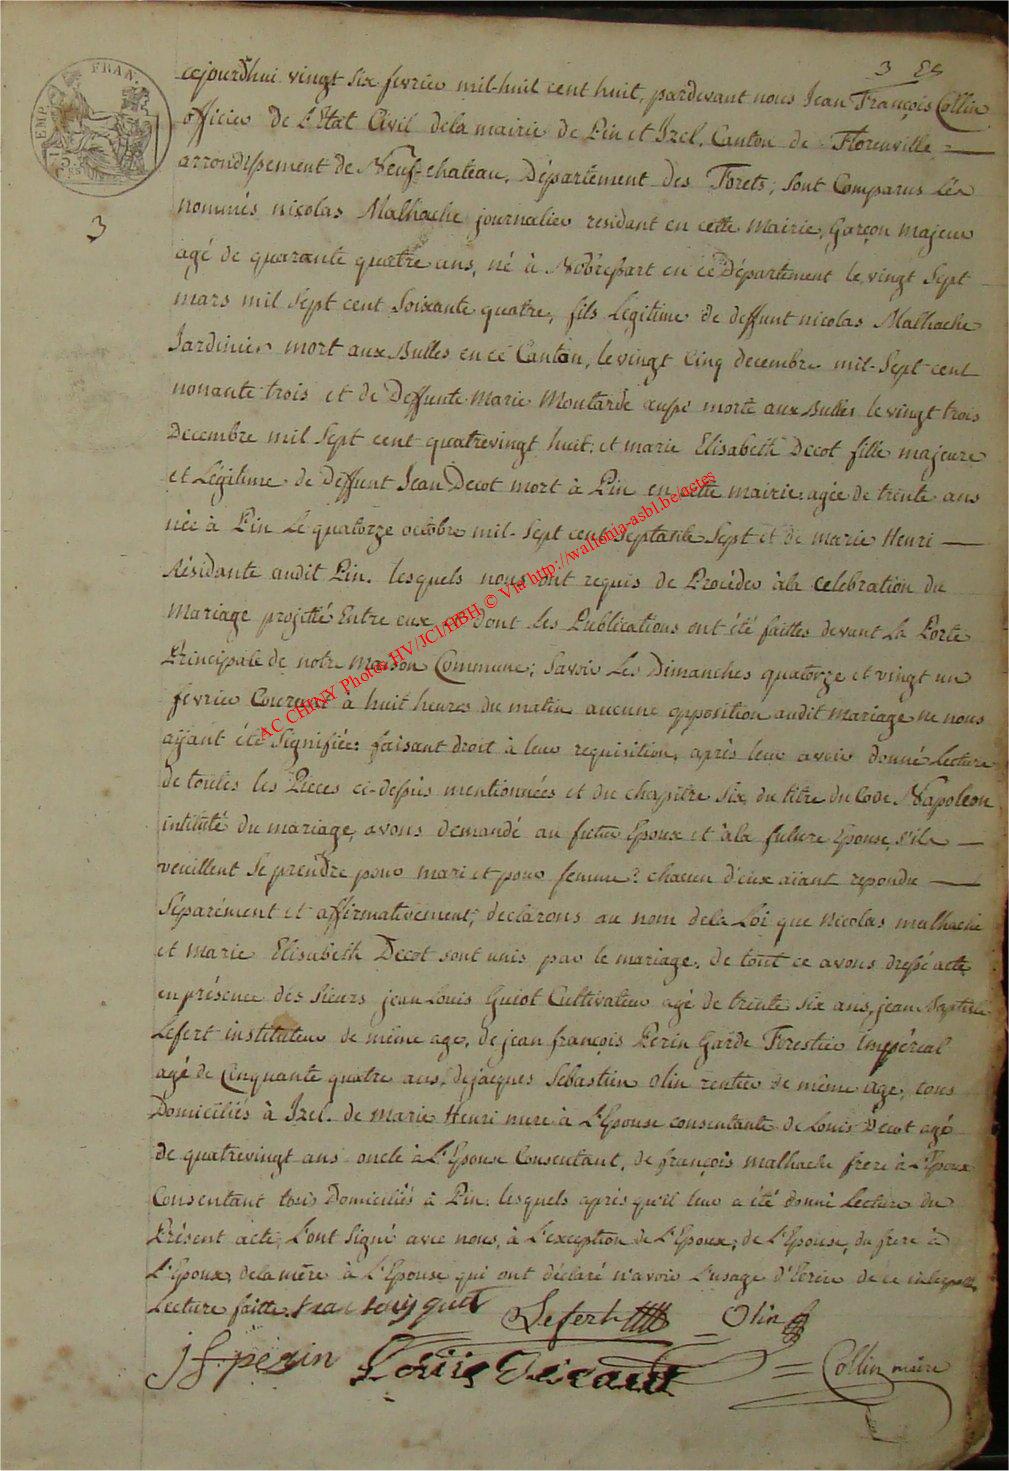 3
EMP. FRAN.
3
cejourdhui vingt six fevrier mil-huit cent huit, pardevant nous Jean François Collin
officier de L'Etat Civil dela mairie de Pin et Izel, Canton de Florenville
arrondissement de Neuf-chateau, Département des Forets; sont Comparus Les
nommés nicolas Malhache journalier residant en cette Mairie, Garçon majeur
agé de quarante quatre ans, né à Nobressart en ce Département le vingt sept
mars mil sept cent soixante quatre, fils Legitime de deffunt nicolas Malhache
Jardinier mort aux Bulles en ce Canton, le vingt cinq decembre mil-sept cent
nonante trois et de Deffunte Marie Moutarde aussi morte aux Bulles le vingt trois
Decembre mil sept cent quatrevingt huit; et marie Elisabeth Decot fille majeure
et Légitime de Deffunt Jean Decot mort à Pin en cette mairie agée de trente ans
née à Pin Le quatorze octobre mil-sept cent septante sept et de marie Henri
Résidante audit Pin. lesquels nous ont requis de Procéder àla Celebration du
Mariage projetté Entre eux et dont les Publications ont été faittes devant La Porte
Principale de notre Maison Commune; savoir Les Dimanches quatorze et vingt un
fevrier Courant à huit heures du matin aucune opposition audit mariage ne nous
ayant été signifiée: faisant droit à leur requisition, après leur avoir donné Lecture
de toutes les Pieces ci-dessus mentionnées et du chapitre six du titre du Code Napoleon
intitulé du mariage, avons demandé au futur Epoux et àla future Epouse s'ils
veuillent se prendre pour mari et pour femme? chacun d'eux aïant repondu
Séparément et affirmativement; declarons au nom dela Loi que Nicolas malhache
et marie Elisabeth Decot sont unis par le mariage. de tout ce avons dressé acte
en présence des Sieurs jean Louis Guiot Cultivateur agé de trente six ans, jean Baptiste
Lefert instituteur de même age, de jean françois Perin Garde Forestier Impérial
agé de Cinquante quatre ans, de jacques Sebastien Olin rentier de même age, tous
Domiciliés à Izel. de Marie Henri mere à L'Epouse consentante de Louis Decot agé
de quatrevingt ans oncle à L'Epouse Consentant, de françois malhache frere à L'Epoux
Consentant tous Domiciliés à Pin. lesquels après qu'il leur a été donné Lecture du
Présent acte, L'ont signé avec nous, à L'exception de L'Epoux; de L'Epouse, du frere à
L'Epoux, dela mère à L'Epouse qui ont déclaré n'avoir L'usage d'Ecrire de ce interpellés
Lecture faitte. jean louis guiot Lefert Olin
jf. perin Louis Decaut Collin maire
AC CHINY Photos HV/JCl/HBH © Via http://wallonia-asbl.be/actes